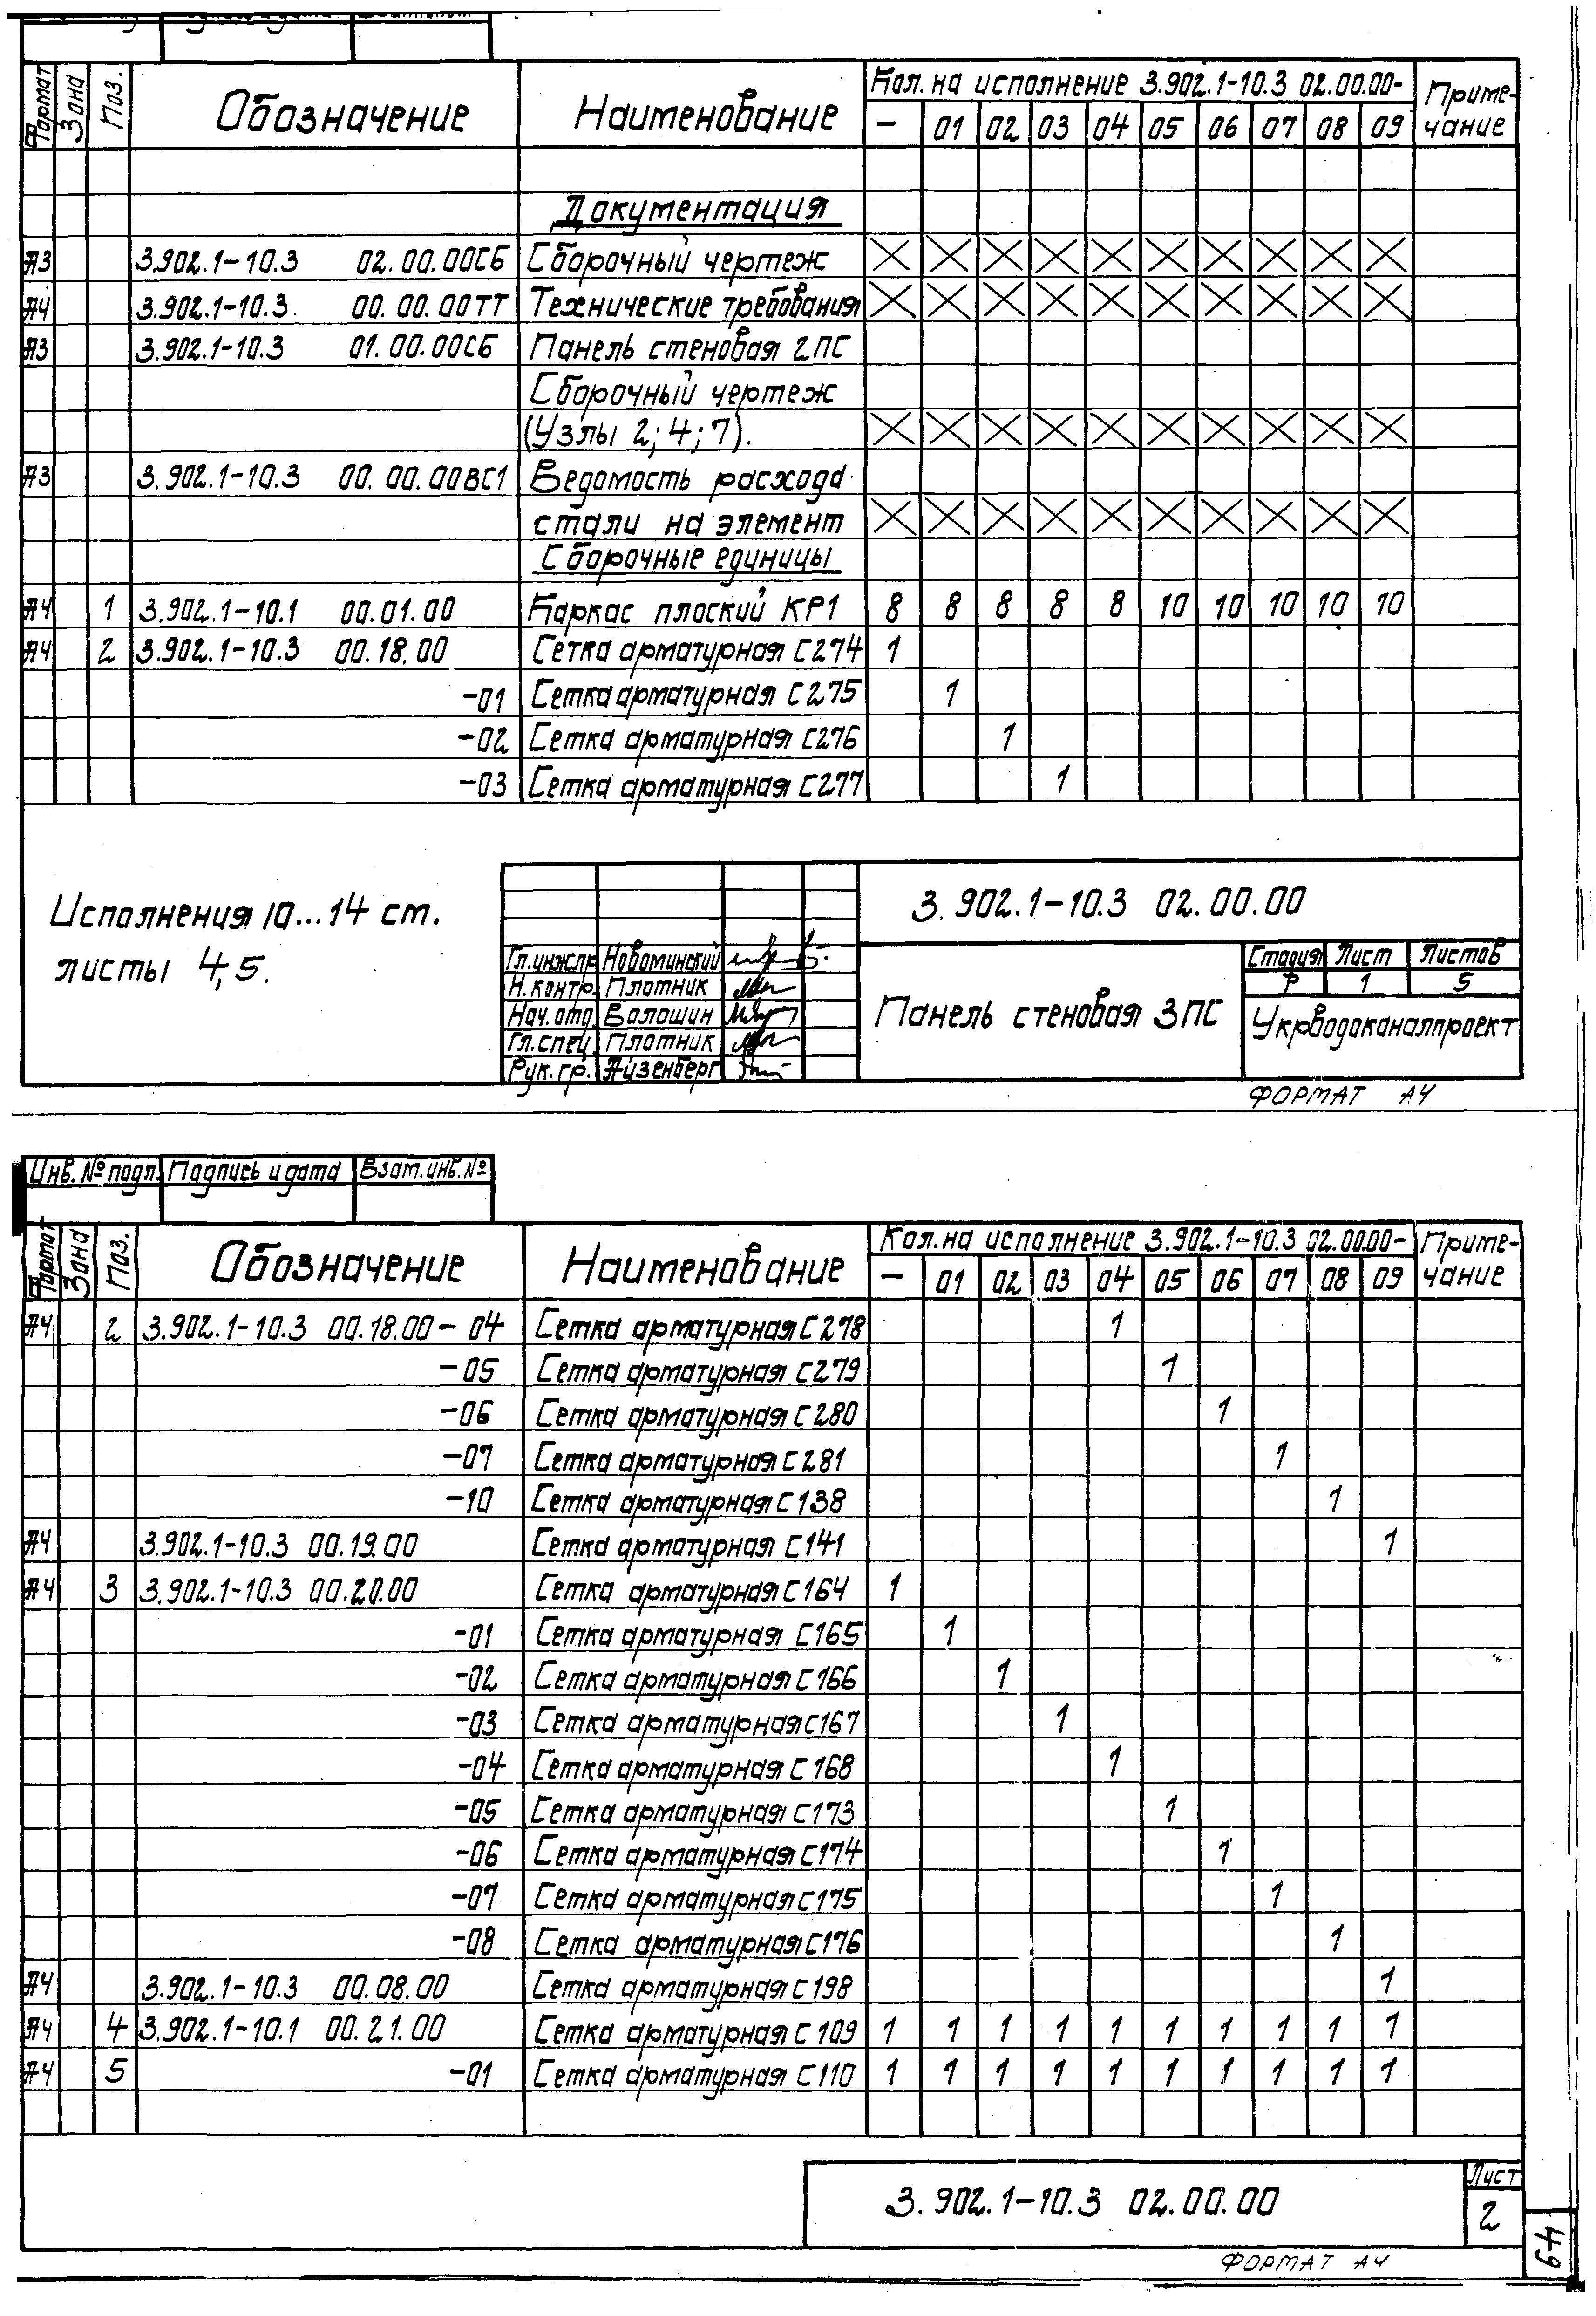 Формат Зона Поз. Обозначение Наименование Кол. на исполнение 3.902.1-10.3 02.00.00- Приме-
чание
– 01 02 03 04 05 06 07 08 09
Документация
А3 3.902.1-10.3 02.00.00СБ Сборочный чертеж
А4 3.902.1-10.3 00.00.00ТТ Технические требования
А3 3.902.1-10.3 01.00.00СБ Панель стеновая 2ПС
Сборочный чертеж
(Узлы 2; 4; 7).
А3 3.902.1-10.3 00.00.00ВС1 Ведомость расхода
стали на элемент
Сборочные единицы
А4 1 3.902.1-10.1 00.01.00 Каркас плоский КР1 8 8 8 8 8 10 10 10 10 10
А4 2 3.902.1-10.3 00.18.00 Сетка арматурная С274 1
-01 Сетка арматурная С275 1
-02 Сетка арматурная С276 1
-03 Сетка арматурная С277 1
Исполнения 10...14 см.
листы 4,5.
3.902.1-10.3 02.00.00
Гл.инж.пр. Новоминский
Н.контр. Плотник
Нач.отд. Волошин
Гл.спец. Плотник
Рук.гр. Айзенберг
Панель стеновая 3ПС
Стадия Лист Листов
Р 1 5
Укрводоканалпроект
ФОРМАТ А4
Инв. № подл. Подпись и дата Взам.инв.№
Формат Зона Поз. Обозначение Наименование Кол. на исполнение 3.902.1-10.3 02.00.00- Приме-
чание
– 01 02 03 04 05 06 07 08 09
А4 2 3.902.1-10.3 00.18.00-04 Сетка арматурная С278 1
-05 Сетка арматурная С279 1
-06 Сетка арматурная С280 1
-07 Сетка арматурная С281 1
-10 Сетка арматурная С138 1
А4 3.902.1-10.3 00.19.00 Сетка арматурная С141 1
А4 3 3.902.1-10.3 00.20.00 Сетка арматурная С164 1
-01 Сетка арматурная С165 1
-02 Сетка арматурная С166 1
-03 Сетка арматурная С167 1
-04 Сетка арматурная С168 1
-05 Сетка арматурная С173 1
-06 Сетка арматурная С174 1
-07 Сетка арматурная С175 1
-08 Сетка арматурная С176 1
А4 3.902.1-10.3 00.08.00 Сетка арматурная С198 1
А4 4 3.902.1-10.1 00.21.00 Сетка арматурная С109 1 1 1 1 1 1 1 1 1 1
А4 5 -01 Сетка арматурная С110 1 1 1 1 1 1 1 1 1 1
3.902.1-10.3 02.00.00
Лист
2
ФОРМАТ А4
49